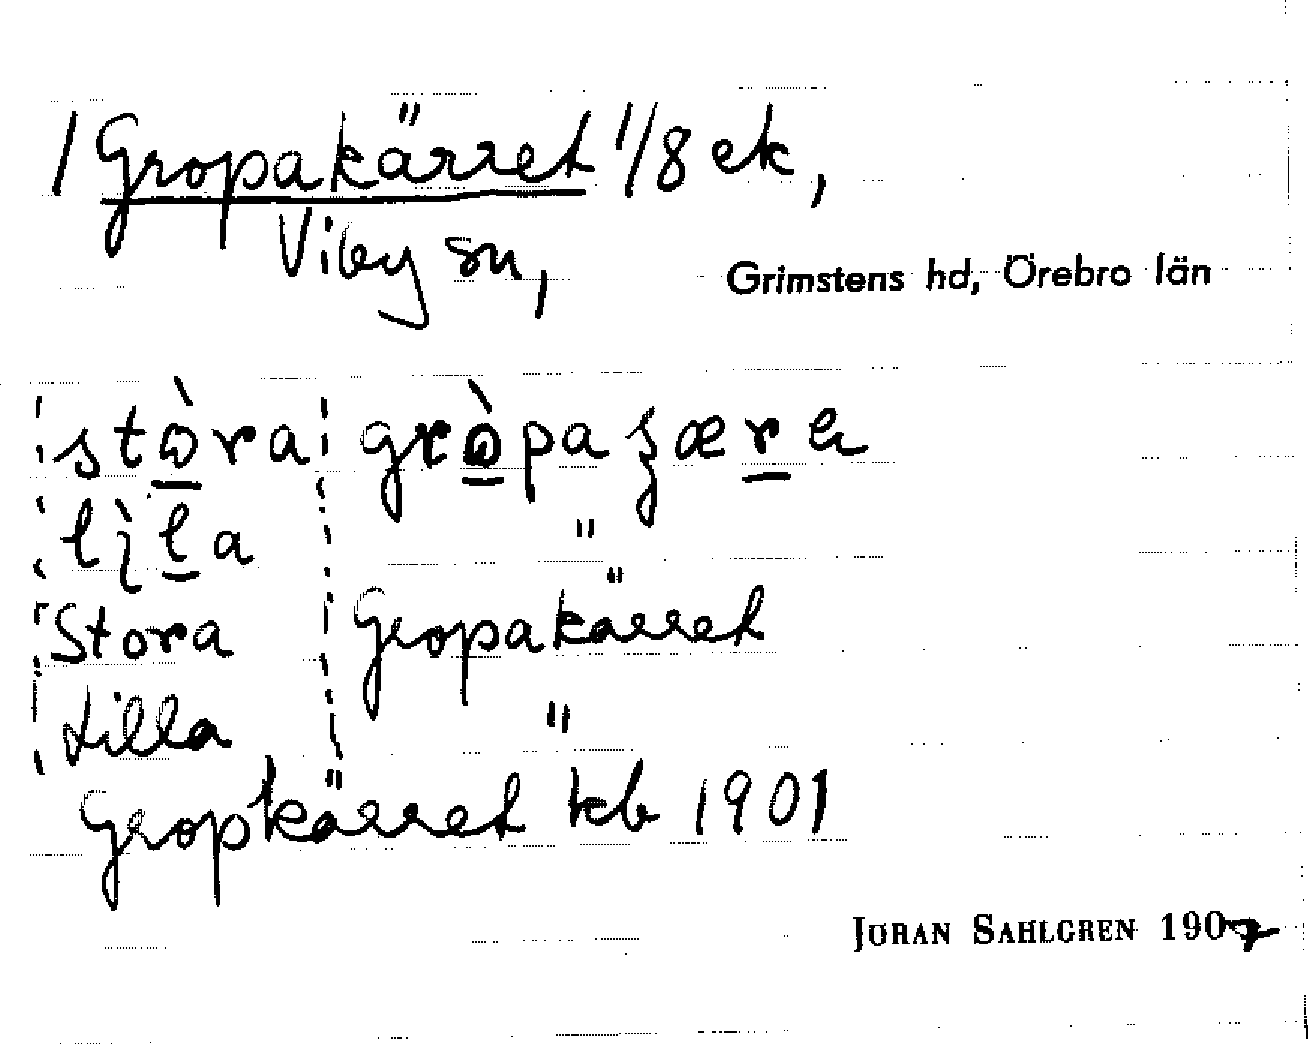 / Gropakärret 1/8 ek,
Viby sn,
Grimstens hd, Örebro län
stòra gròpaʒæra
lìla "
Stora Gropakärret
Lilla "
Gropkärret kb 1901
JÖRAN SAHLGREN 1907